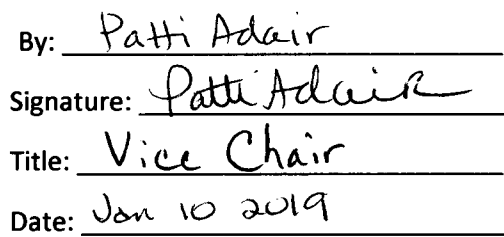 By: Patti Adair
Signature: Patti Adair
Title: Vice Chair
Date: Jan 10 2019